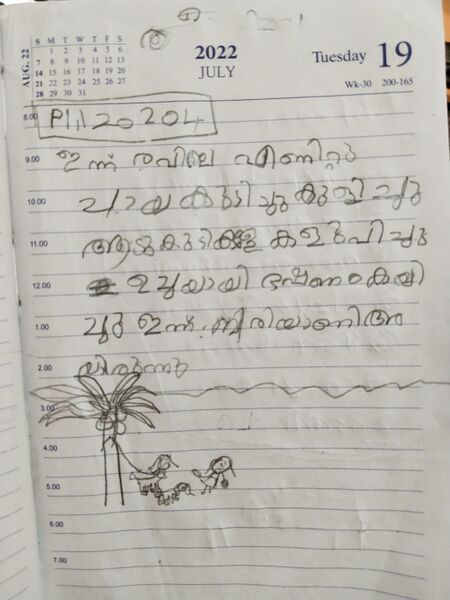 AUG. 22
S M T W T F S
1 2 3 4 5 6
7 8 9 10 11 12 13
14 15 16 17 18 19 20
21 22 23 24 25 26 27
28 29 30 31
2022
JULY
Tuesday 19
Wk-30 200-165
8.00
9.00 ഇന്ന് രവിലേ എണിറ്റു
10.00 ചായ കുടിചു കുളിച്ചു
11.00 ആടുകുടികളെ കളിപിചു
12.00 ഉച്ചയായി ഭഷണം കയി
1.00 ചു ഇന്ന് ബിരിയാണിഅ
2.00 യിരുന്നു
3.00
4.00
5.00
6.00
7.00